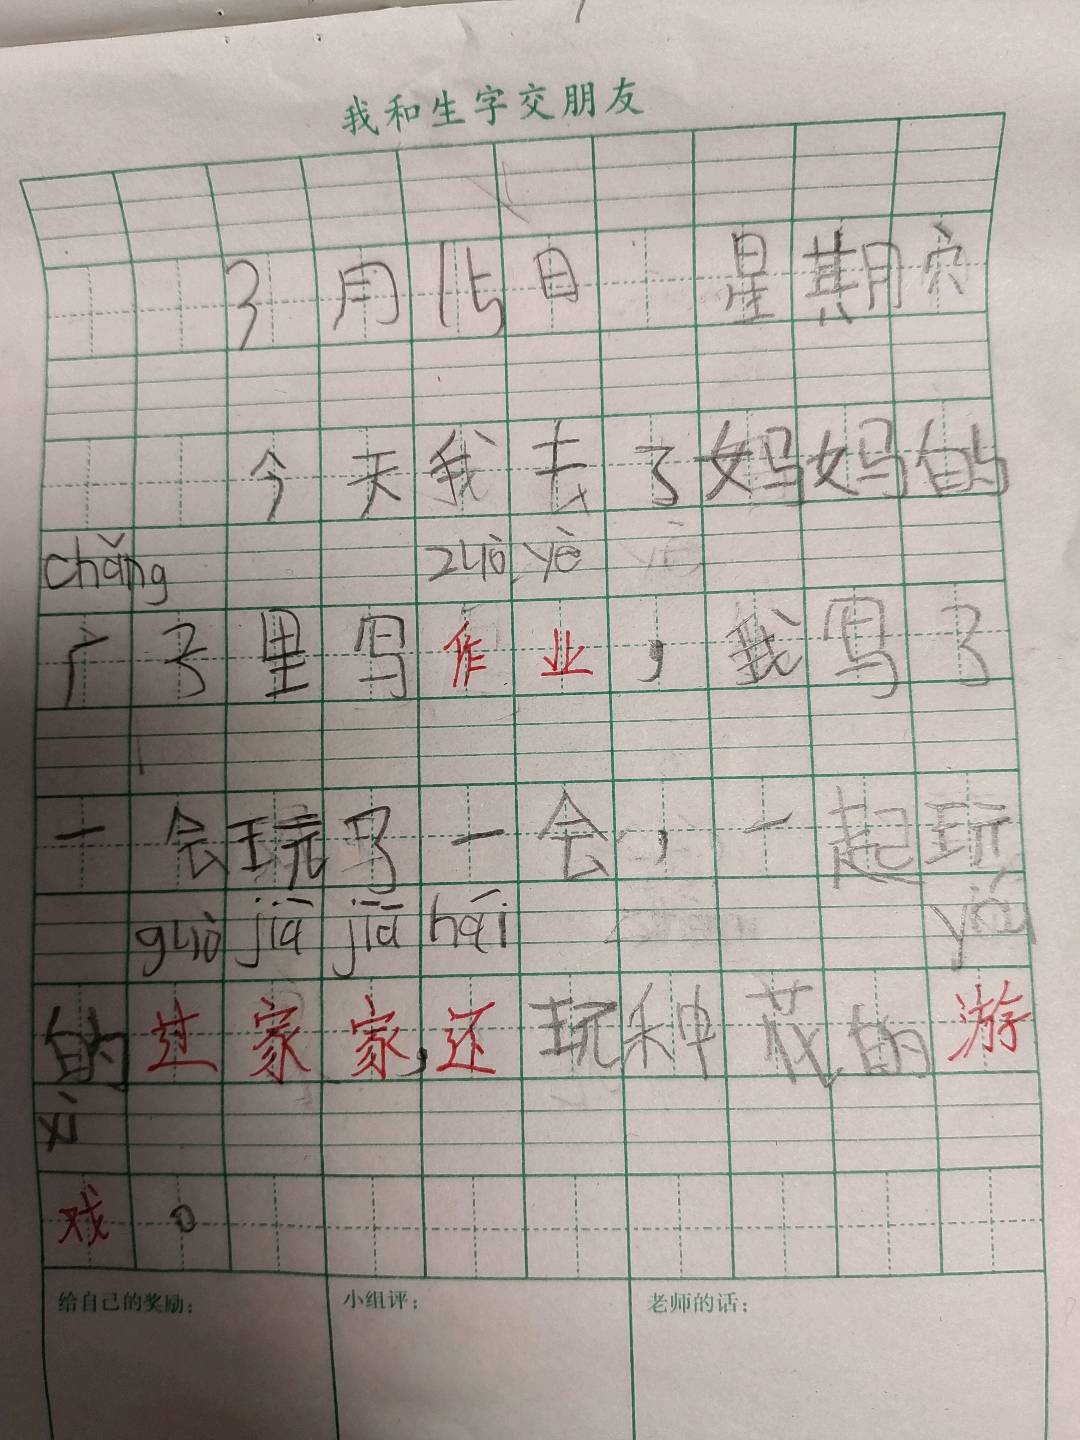 我和生字交朋友
3月15日 星期六
今天我去了妈妈的
chǎng zuò yè yè
厂子里写作业，我写了
一会玩了一会，一起玩
guò jiā jiā hái yóu
的过家家，还玩种花的游
xì
戏。
给自己的奖励： 小组评： 老师的话：